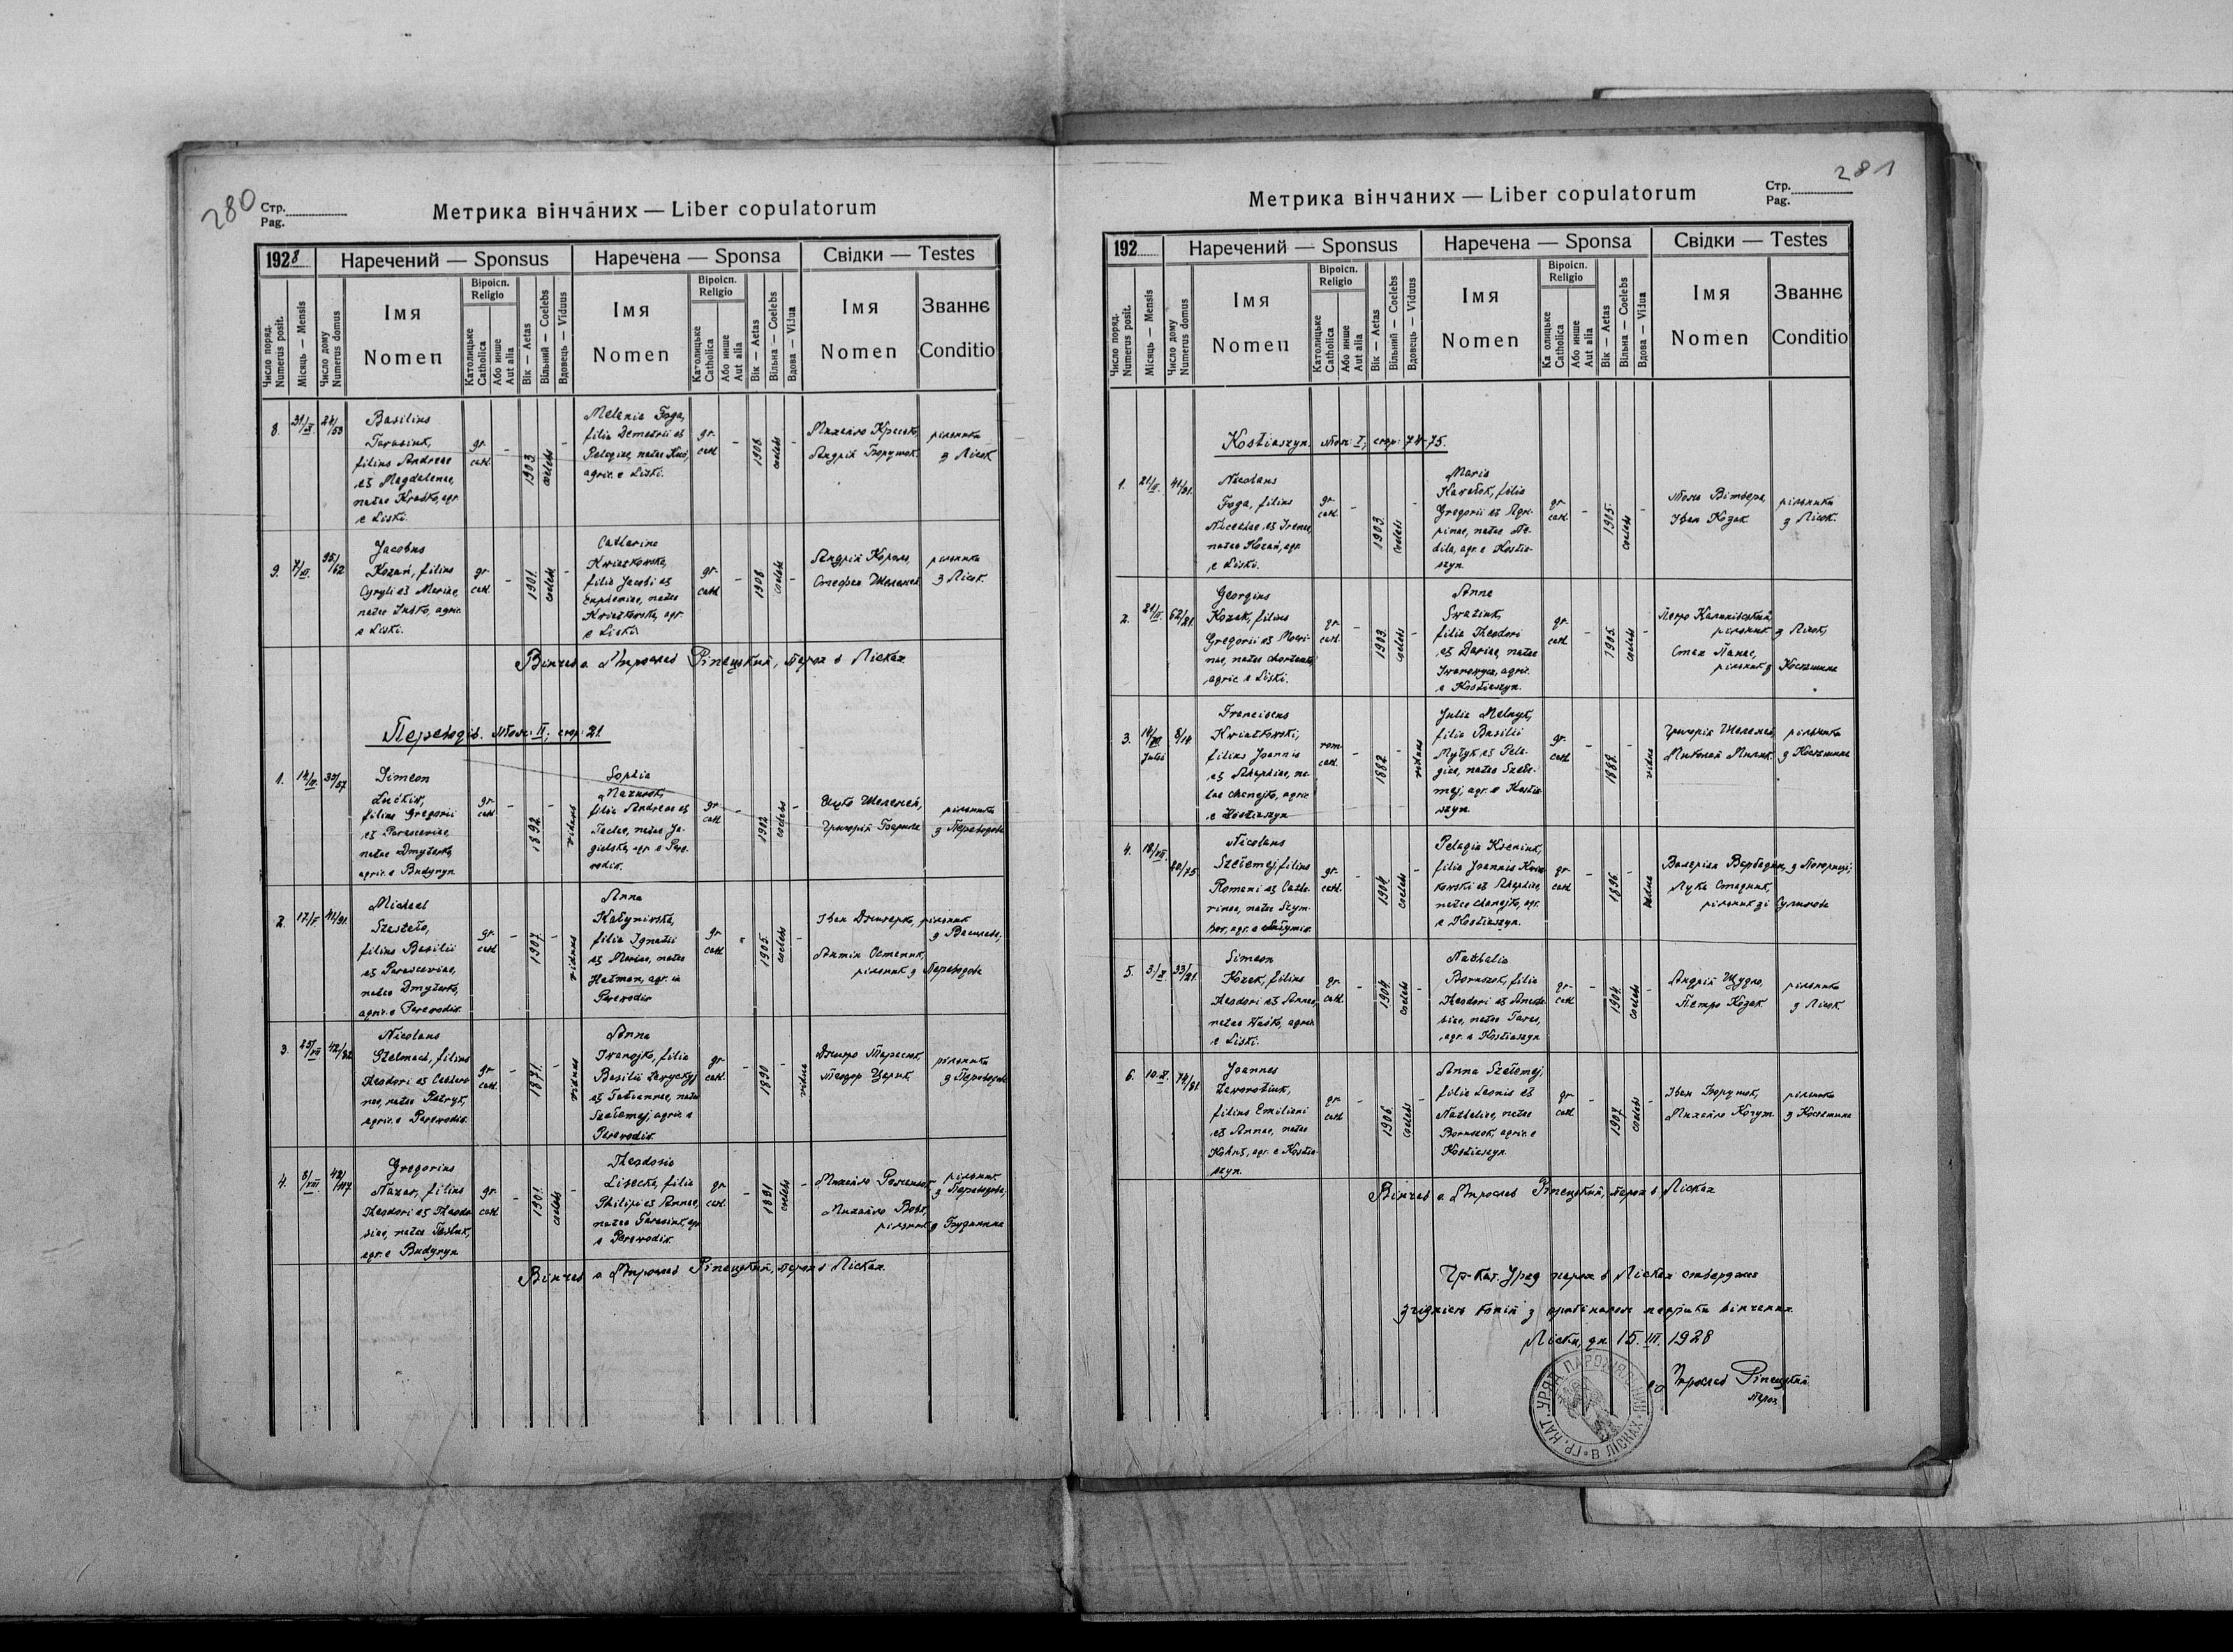 280
Стр.
Pag.
Метрика вінчаних — Liber copulatorum
1928
Наречений — Sponsus
Наречена — Sponsa
Свідки — Testes
Число поряд.
Numerus posit.
Місяць — Mensis
Число дому
Numerus domus
Імя
Nomen
Віроісп.
Religio
Католицьке
Catholica
Або инше
Aut alia
Вік — Aetas
Вільний — Coelebs
Вдовець — Viduus
Імя
Nomen
Віроісп.
Religio
Католицьке
Catholica
Або инше
Aut alia
Вік — Aetas
Вільна — Coelebs
Вдова — Vidua
Імя
Nomen
Званнє
Conditio
8.
31/X.
Basilius
Tarasiuk,
filius Andreae
et Magdalenae,
natae Krasko, agr.
e Liski.
gr.
cath.
1903.
coelebs
Melania Foga,
filia Demetrii et
Pelagiae, natae
agric. e Liski.
gr.
cath.
1908.
coelebs
Михайло
Андрій
рільники
з Лісок
9.
7/XI.
95/62
Jacobus
Kozań, filius
Cyryli et Mariae,
natae Juśko, agric.
e Liski.
gr.
cath.
1901.
coelebs
Catharina
Kwiatkowska,
filia Jacobi et
Euphemiae, natae
Kwiatkowska, agr.
e Liski.
gr.
cath.
1908
coelebs
Андрій Король,
Стефан Шелемей
рільники
з Лісок.
Вінчав о. Ярослав Ріпецький, парох в Лісках
Переводів. Том: II; стор: 21.
1.
30/57
Simeon
Luckiw,
filius Gregorii
et Parasceviae,
natae Dmyterko,
agric. e Budynyn
gr.
cath.
1892.
viduus
Sophia
Nazurok,
filia Andreae et
Teclae, natae Ja-
gielska, agr. e Pere-
wodiw.
gr.
cath.
1902
coelebs
Яцко Шелемей,
Григорій
рільники
з Переводова
2.
17/V.
42/91.
Michael
Szesteło,
filius Basilii
et Parasceviae,
natae Dmyterko,
agric. e Perewodiw.
gr.
cath.
1907.
viduus
Anna
Kałyniwska,
filia Ignatii
et Mariae, natae
Hetman, agr. in
Perewodiw
gr.
cath.
1905.
coelebs
Іван Дмитерко, рільник
з Василева,
Антін Остапик,
рільник з Переводова
3.
25/VII
42/82
Nicolaus
Stelmach, filius
Theodori et Cathari-
nae, natae Petryk,
agric. e Perewodiw.
gr.
cath.
1871.
viduus
Anna
Iwanojko, filia
Basilii Lewyckyj
et Tatiannae, natae
Szełemej, agric. e
Perewodiw.
gr.
cath.
1890
vidua
Дмитро Тарасюк,
Теодор Царик
рільники
з Переводова
4.
8/VIII.
42/117
Gregorius
Nazar, filius
Theodori et Theodo-
siae, natae
agr. e Budynyn
gr.
cath.
1901.
coelebs
Theodosia
Lisecka, filia
Philipi et Annae,
natae Tarasiuk, agr.
e Perewodiw.
gr.
cath.
1891
coelebs
Михайло
рільник
з Переводова,
Михайло Вовк,
рільник з Будинина
Вінчав о. Ярослав Ріпецький, парох в Лісках
281
Стр.
Pag.
Метрика вінчаних — Liber copulatorum
192
Наречений — Sponsus
Наречена — Sponsa
Свідки — Testes
Число поряд.
Numerus posit.
Місяць — Mensis
Число дому
Numerus domus
Імя
Nomen
Віроісп.
Religio
Католицьке
Catholica
Або инше
Aut alia
Вік — Aetas
Вільний — Coelebs
Вдовець — Viduus
Імя
Nomen
Віроісп.
Religio
Ка олицьке
Catholica
Або инше
Aut alia
Вік — Aetas
Вільна — Coelebs
Вдова — Vidua
Імя
Nomen
Званнє
Conditio
Kostiaszyn. Том: I; стор: 74-75.
1.
21/II.
41/21.
Nicolaus
Foga, filius
Nicolae, et Irenae,
natae Kozań, agr.
e Liski.
gr.
cath.
1903.
coelebs
Maria
Kawałok, filia
Gregorii et Agri-
pinae, natae Ne-
dila, agr. e Kostia-
szyn.
gr.
cath.
1905.
coelebs
Тома
Іван Козак
рільники
з Лісок.
2.
21/II.
62/21.
Georgius
Kozak, filius
Gregorii et Mari-
nae, natae
agric. e Liski.
gr.
cath.
1903.
coelebs
Anna
filia Theodori
et Dariae, natae
Iwanowycz, agric.
e Kostiaszyn.
gr.
cath.
1905.
coelebs
Петро Калинівський,
рільник з Лісок,
Стах Панас,
рільник з Костяшина
3.
8/14
Franciscus
Kwiatkowski,
filius Joannis
et Agaphiae, na-
tae Chanejko, agric.
e Kostiaszyn
rom.
cath.
1882.
viduus
Julia Melnyk,
filia Basilii
Mytyk et Pela-
giae, natae Szełe-
mej, agr. e Kostia-
szyn.
gr.
cath.
1888.
vidua
Григорій Шелемей,
Миколай
рільники
з Костяшина
4.
18/VII.
80/75.
Nicolaus
Szełemej, filius
Romani et Catha-
rinae, natae Szym-
bor, agr. e
gr.
cath.
1904.
coelebs
Pelagia Kseniuk,
filia Joannis Kwiat-
kowski et Agaphiae,
natae Chanejko, agr.
e Kostiaszyn.
gr.
cath.
1896
vidua
Валеріян
Лука Стадник,
рільник зі Сулимова
5.
3/X.
33/21.
Simeon
Kozak, filius
Theodori et Annae,
natae Waśko, agric.
e Liski.
gr.
cath.
1904.
coelebs
Nathalia
Bornszok, filia
Theodori et Anasta-
siae, natae Taras,
agr. e Kostiaszyn
gr.
cath.
1904.
coelebs
Андрій Щудло,
Петро Козак
рільники
з Лісок.
6.
10.X.
74/81.
Joannes
Zaworotiuk,
filius Emiliani
et Annae, natae
Kohut, agr. e Kostia-
szyn.
gr.
cath.
1906.
coelebs
Anna Szełemej,
filia Leonis et
Nathaliae, natae
Bornszok, agric. e
Kostiaszyn.
gr.
cath.
1907.
coelebs
Іван
Михайло Когут.
рільники
з Костяшина
Вінчав о. Ярослав Ріпецький, парох в Лісках
Гр.-Кат. Уряд парох. в Лісках стверджає
згідність копії з оригіналом метрики вінчаних
Ліски, дн. 15. III. 1928
о Ярослав Ріпецький
парох
ГР. КАТ. УРЯД ПАРОХІЯЛЬНИЙ В ЛІСКАХ